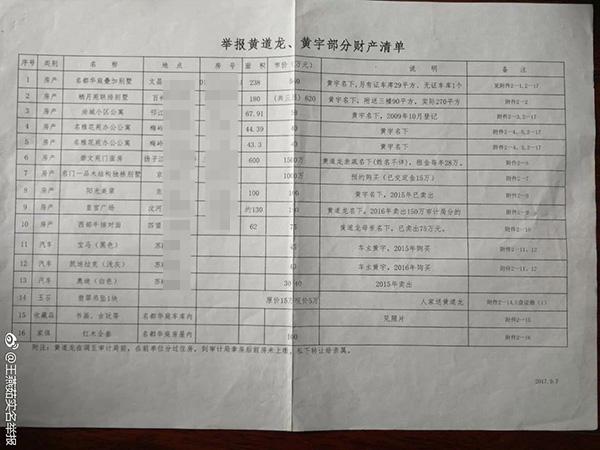 举报黄道龙、黄宇部分财产清单
序号 类别 名称 地点 房号 面积 市价(万元) 说明 备注
1 房产 名都华庭叠加别墅 文昌 238 黄宇名下,另有证车库29平方,无证车库1个 见附件2-1,2-17
2 房产 栖月苑联排别墅 百 180 (共三层) 620 黄宇名下,附送三楼90平方,实际270平方 附件2-2
3 房产 尚城小区公寓 邗江 67.91 黄宇名下,2009年10月登记 附件2-3,2-17
4 房产 名雅花苑办公公寓 梅岭 44.39 40 黄宇名下 附件2-4、5,2-17
5 房产 名雅花苑办公公寓 梅岭 43.3 40 黄宇名下 附件2-4、5,2-17
6 房产 崇文苑门面房 扬子江 600 1500万 黄道龙亲戚名下(姓名不详),租金每年28万。 附件2-6
7 房产 名门一品木结构独栋别墅 京 1000万 预约购买(已交定金15万) 附件2-7
8 房产 阳光美第 100 100 黄宇名下,2015年已卖出 附件2-8
9 房产 皇宫广场 汶河 约130 黄道龙名下,2016年卖出150万审计局分的 附件2-9
10 房产 西部牛排对面 四望 62 75 黄道龙母亲名下,已卖出75万元。 附件2-10
11 汽车 宝马(黑色) 苏 45 车主黄宇,2015年购买 附件2-11、12
12 汽车 凯迪拉克(浅灰) 苏 车主黄宇,2016年购买 附件2-11、12
13 汽车 奥迪(白色) 苏 30-40 2015年卖出 附件2-13
14 玉石 翡翠吊坠1块 原价15万现价5万 人家送黄道龙 附件2-14,
15 收藏品 书画、古玩等 名都华庭车库内 见照片 附件2-15
16 家俱 红木全套 名都华庭房屋内 100 附件2-16
附注:黄道龙在调至审计局前,在前单位分过住房,到审计局拿房后前房未上缴,私下转让给亲属。
2017.9.7
@王燕茹实名举报